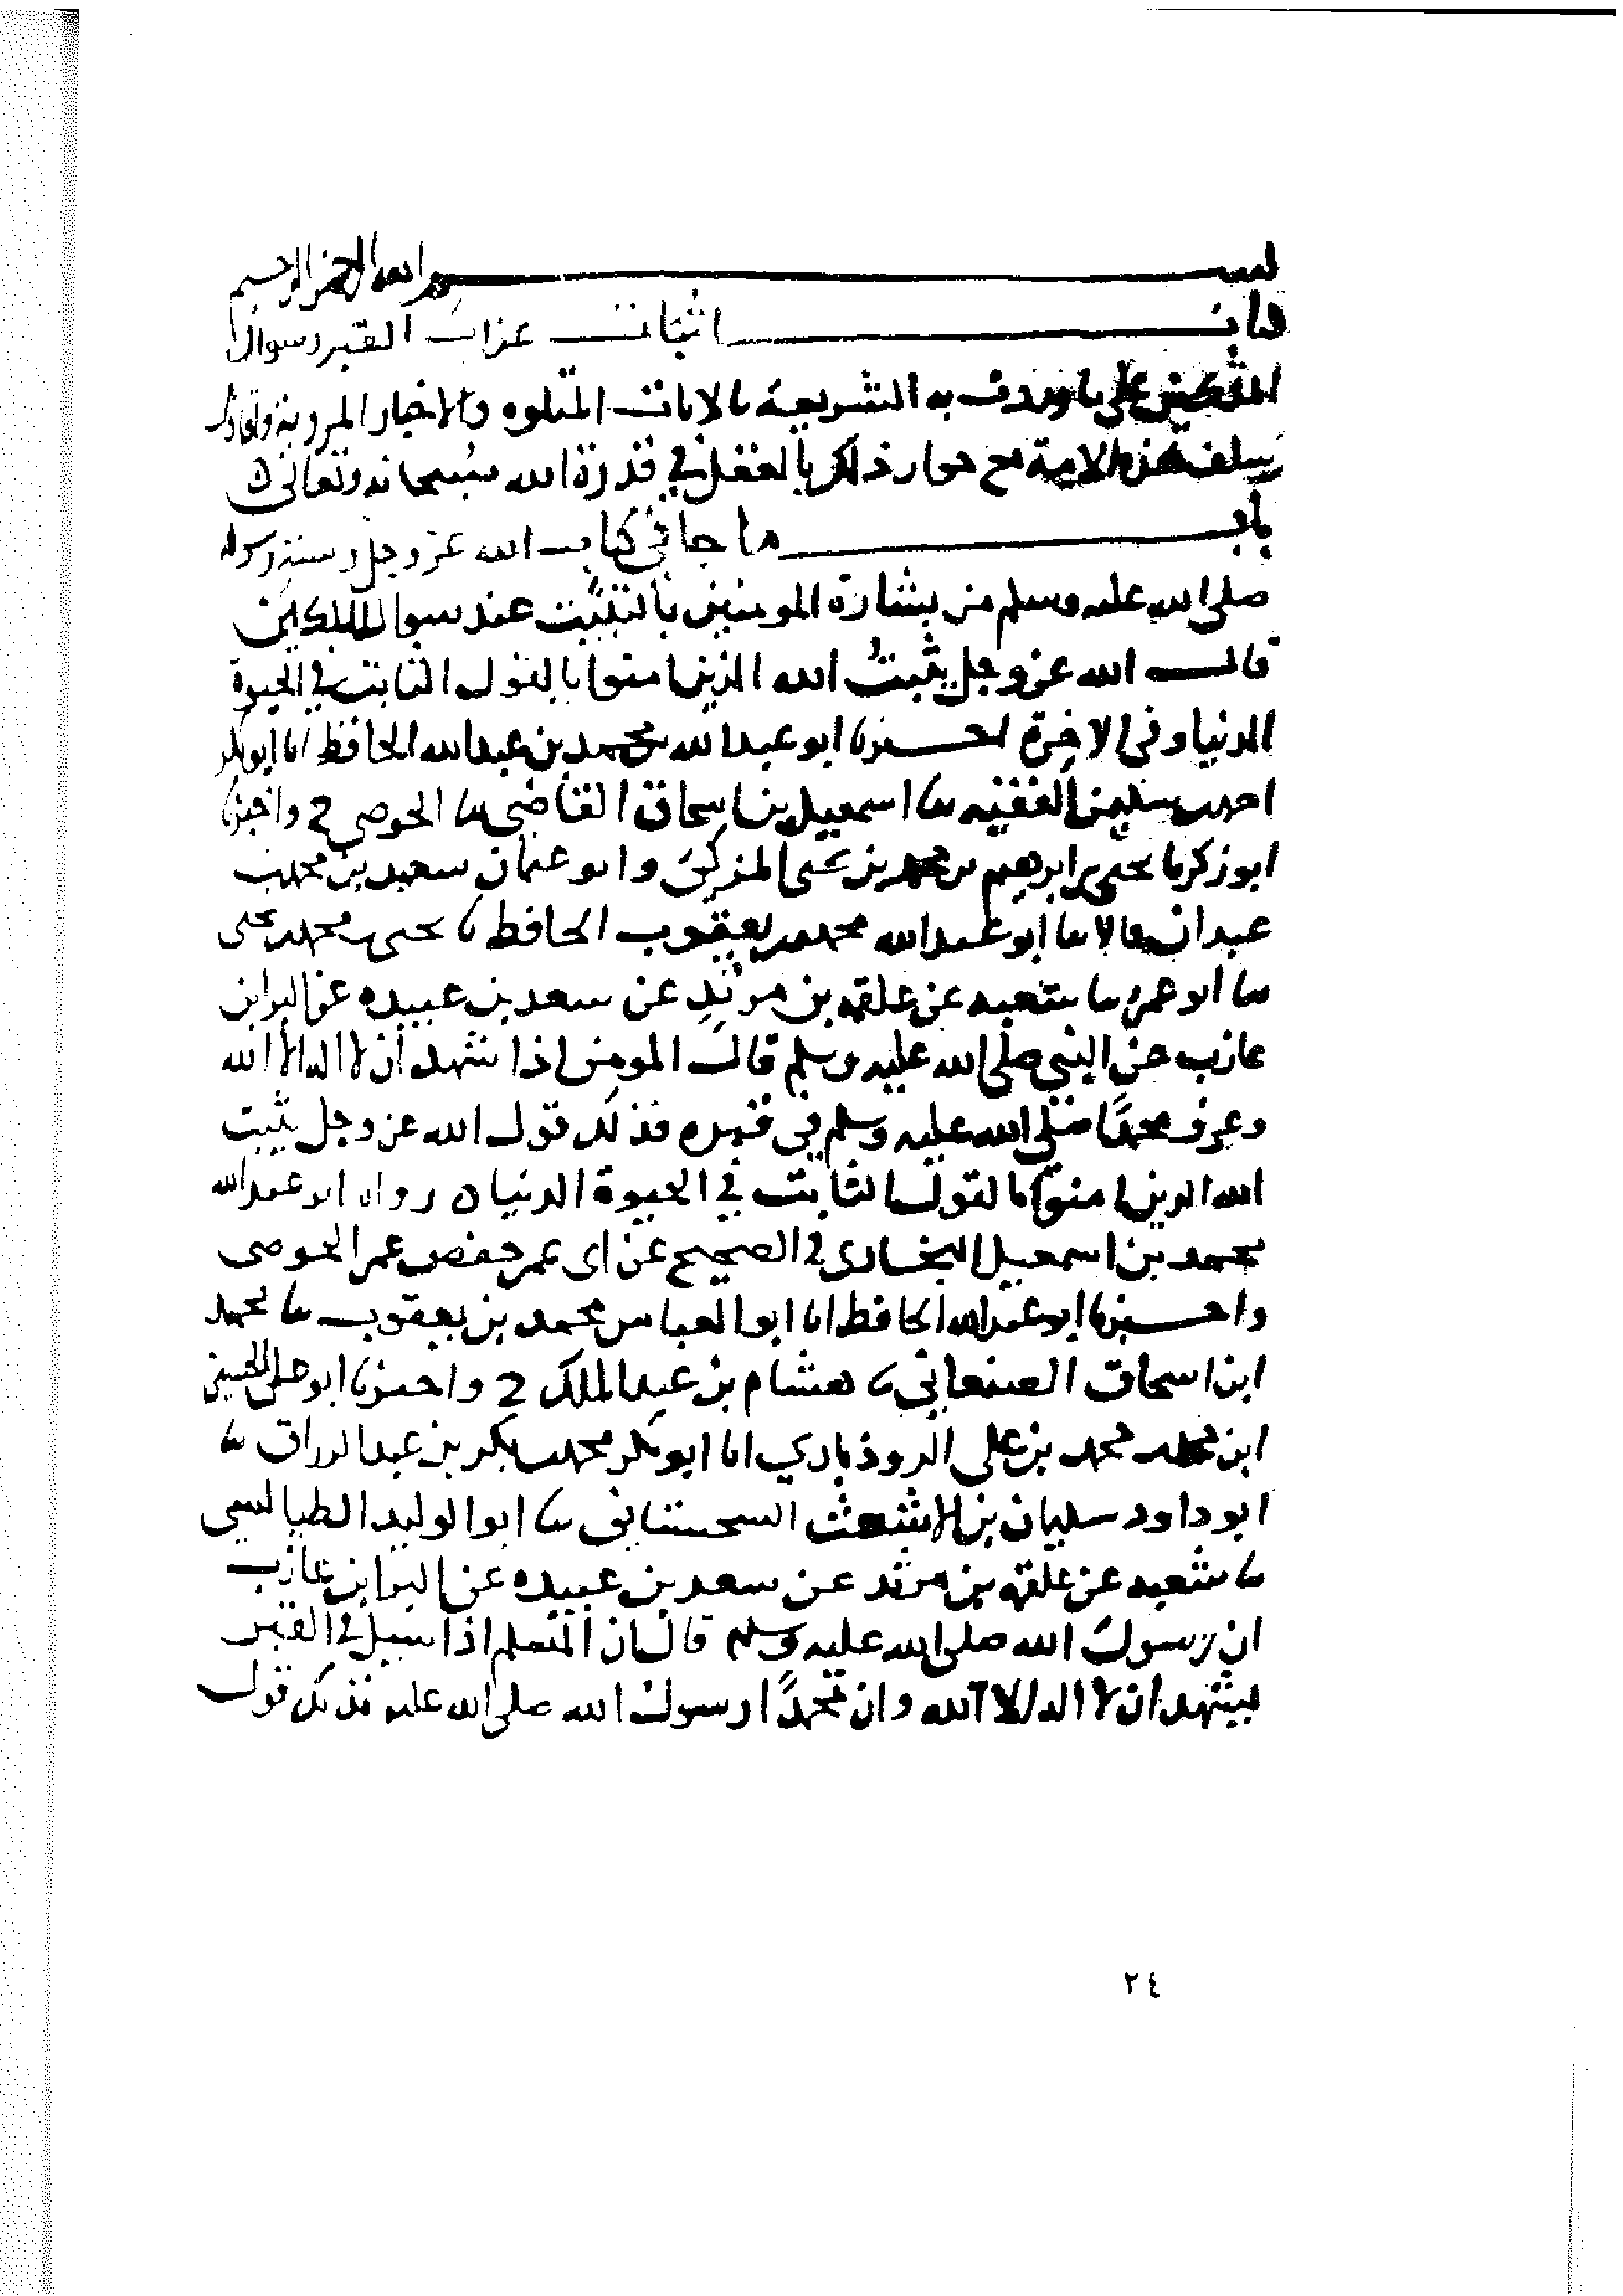 بسم الله الرحمن الرحيم
باب اثبات عذاب القبر وسوال
الملكين على ما وردت به الشريعة بالايات المتلوه والاخبار المروية واقاويل
سلف هذه الامة مع جواز ذلك بالعقل في قدرة الله سبحانه وتعالى ه
باب ما جا في كتاب الله عز وجل وسنة رسوله
صلى الله عليه وسلم من بشارة المومنين بالتثبيت عند سوال الملكين
قال الله عز وجل يثبت الله الذين امنوا بالقول الثابت في الحيوة
الدنيا وفي الاخرة اخبرنا ابو عبد الله محمد بن عبد الله الحافظ انا ابو بكر
احمد بن سليمن الفقيه ثنا اسمعيل بن اسحاق القاضي ثنا الحوضي ح واخبرنا
ابو زكريا يحيى بن ابرهيم بن محمد بن يحيى المزكي وابو عثمان سعيد بن محمد بن
عبدان قالا ثنا ابو عبد الله محمد بن يعقوب الحافظ ثنا يحيى بن محمد بن يحيى
ثنا ابو عمر ثنا شعبه عن علقمه بن مرثد عن سعد بن عبيده عن البرا بن
عازب عن النبي صلى الله عليه وسلم قال المومن اذا شهد ان لا اله الا الله
وعرف محمدا صلى الله عليه وسلم في قبره فذلك قول الله عز وجل يثبت
الله الذين امنوا بالقول الثابت في الحيوة الدنيا ه رواه ابو عبد الله
محمد بن اسمعيل البخاري في الصحيح عن ابي عمر حفص بن عمر الحوضي
واخبرنا ابو عبد الله الحافظ انا ابو العباس محمد بن يعقوب ثنا محمد
ابن اسحاق الصنعاني ثنا هشام بن عبد الملك ح واخبرنا ابو علي الحسين
ابن محمد بن محمد بن علي الروذباري انا ابو بكر محمد بن بكر بن عبد الرزاق ثنا
ابو داود سليمان بن الاشعث السجستاني ثنا ابو الوليد الطيالسي
ثنا شعبه عن علقمه بن مرثد عن سعد بن عبيده عن البرا بن عازب
ان رسول الله صلى الله عليه وسلم قال ان المسلم اذا سيل في القبر
فيشهد ان لا اله الا الله وان محمدا رسول الله صلى الله عليه فذلك قول
٢٤